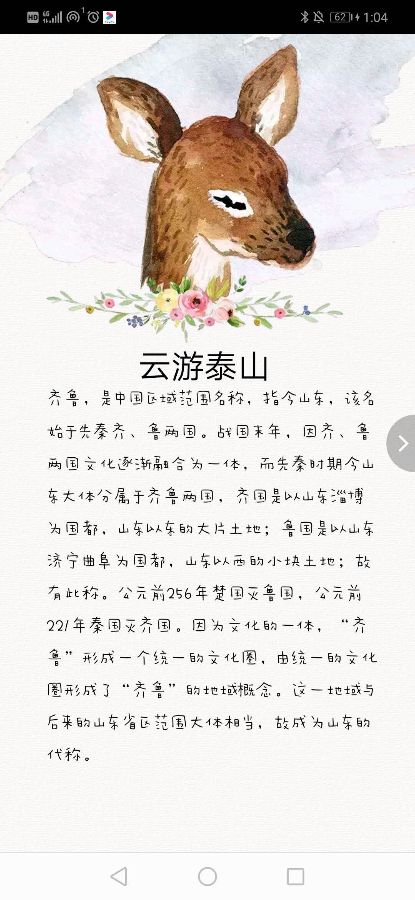 HD 4G 1 62 1:04
云游泰山
齐鲁，是中国区域范围名称，指今山东，该名
始于先秦齐、鲁两国。战国末年，因齐、鲁
两国文化逐渐融合为一体，而先秦时期今山
东大体分属于齐鲁两国，齐国是以山东淄博
为国都，山东以东的大片土地；鲁国是以山东
济宁曲阜为国都，山东以西的小块土地；故
有此称。公元前256年楚国灭鲁国，公元前
221年秦国灭齐国。因为文化的一体，“齐
鲁”形成一个统一的文化圈，由统一的文化
圈形成了“齐鲁”的地域概念。这一地域与
后来的山东省区范围大体相当，故成为山东的
代称。